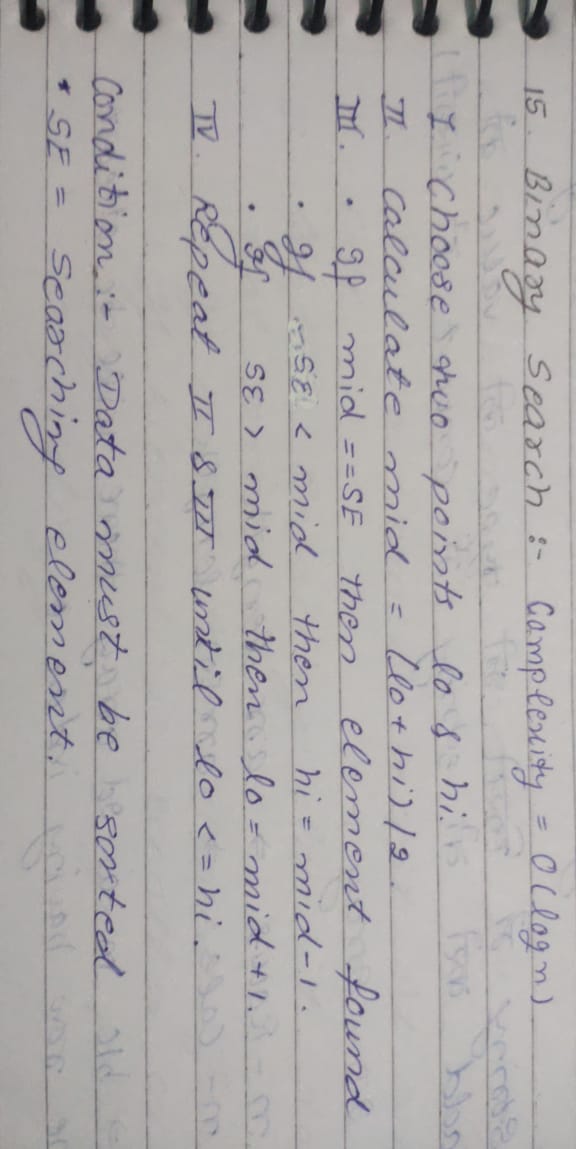 15. Binary Search :- Complexity = O(log n)
I. Choose two points lo & hi.
II. Calculate mid = (lo + hi)/2.
III. • If mid == SE then element found
• If SE < mid then hi = mid-1.
• If SE > mid then lo = mid+1.
IV. Repeat II & III until lo <= hi.
Condition :- Data must be sorted
* SE = Searching element.